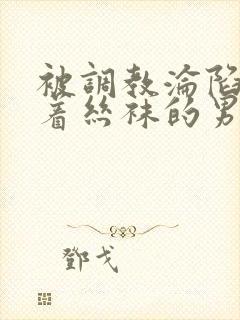 被調教淪陷
着絲袜的男
鄧戈